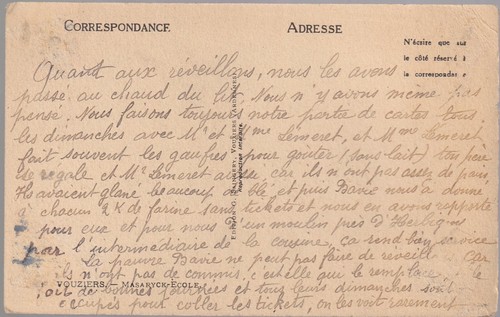 CORRESPONDANCE
ADRESSE
N'écrire que sur
le côté réservé à
la correspondance
Quant aux réveillons, nous les avons
passé au chaud du lit. Nous n'y avons même pas
pensé. Nous faisons toujours notre partie de cartes tous
les dimanches avec Mr et Mme Lemeret, et Mme Lemeret
fait souvent les gaufres pour goûter (sans lait) ton père
se régale et Mr Lemeret aussi, car ils n'ont pas assez de pain,
Ils avaient glané beaucoup de blé, et puis Bavie nous a donné
à chacun 2 K de farine sans tickets et nous en avons rapporté
pour eux et pour nous d'un moulin près d'Herbigny
par l'intermédiaire de la cousine, ça rend bien service
La pauvre Bavie ne peut pas faire de réveillon car
ils n'ont pas de commis, c'est elle qui le remplace, elle
de bonnes journées et tous leurs dimanches sont
occupés pour coller les tickets, on les voit rarement
VOUZIERS. — MASARYCK-ECOLE.